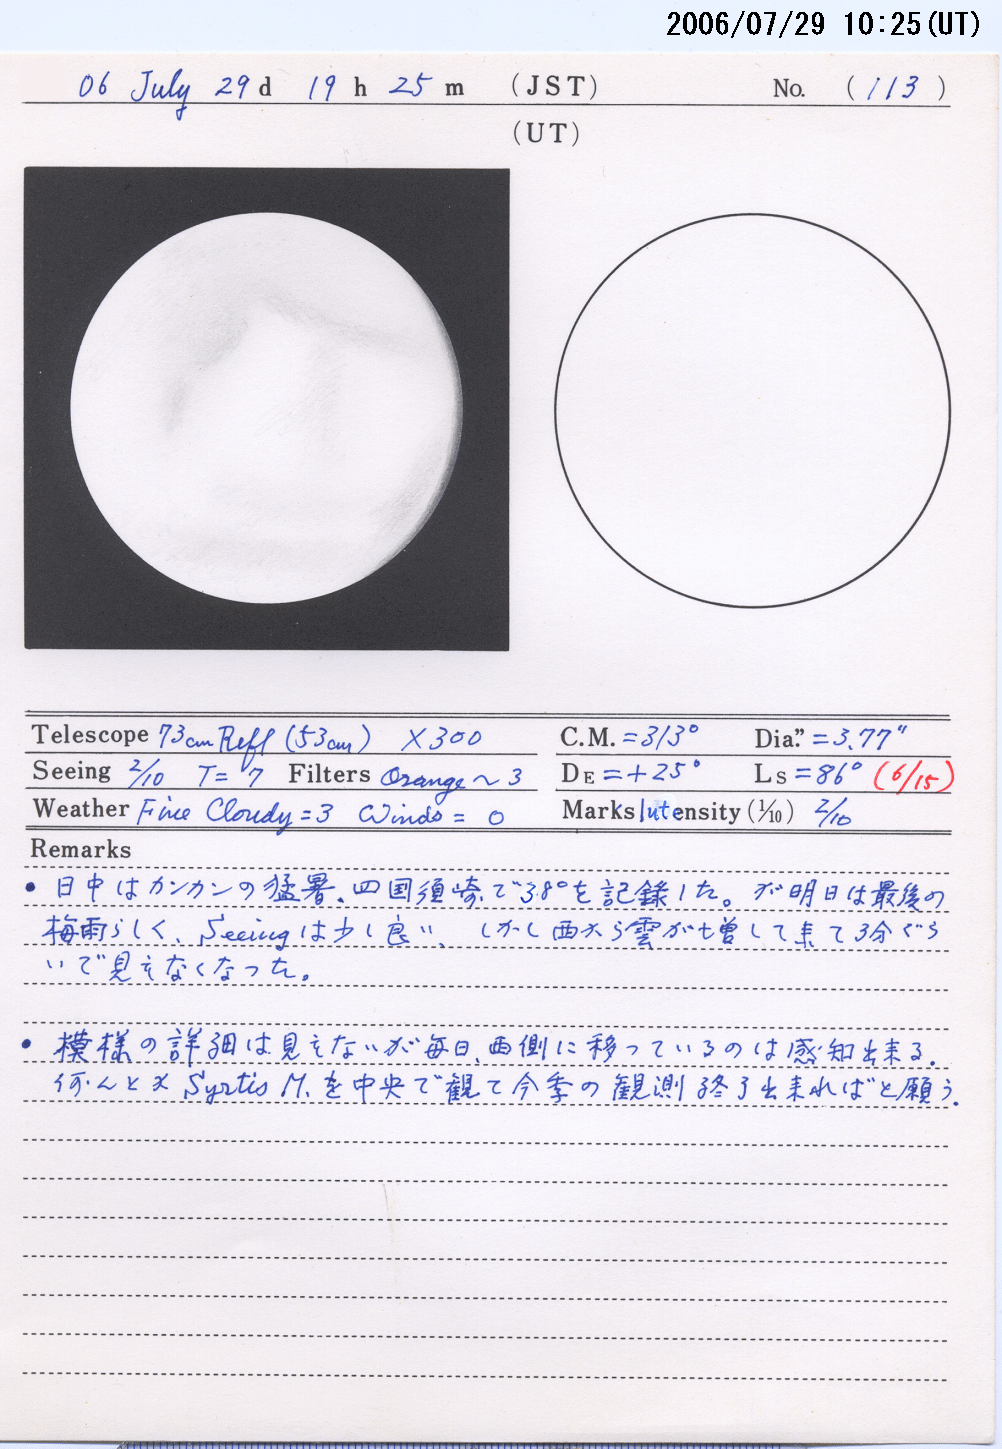 2006/07/29 10:25(UT)
06 July 29 d 19 h 25 m (JST) No. (113)
(UT)
Telescope 73cm Refl (53cm) ×300 C.M. =313° Dia." =3.77"
Seeing 2/10 T= 7 Filters Orange ~ 3 DE =+25° Ls =86° (6/15)
Weather Fine Cloudy=3 Winds= 0 Marks Intensity (1/10) 2/10
Remarks
• 日中はカンカンの猛暑、四国須崎で38°を記録した。が明日は最後の
梅雨らしく、Seeingは少し良い、しかし西から雲が増して来て3分ぐら
いで見えなくなった。
• 模様の詳細は見えないが毎日、西側に移っているのは感知出来る.
何んとか Syrtis M. を中央で観て今季の観測終了出来ればと願う.